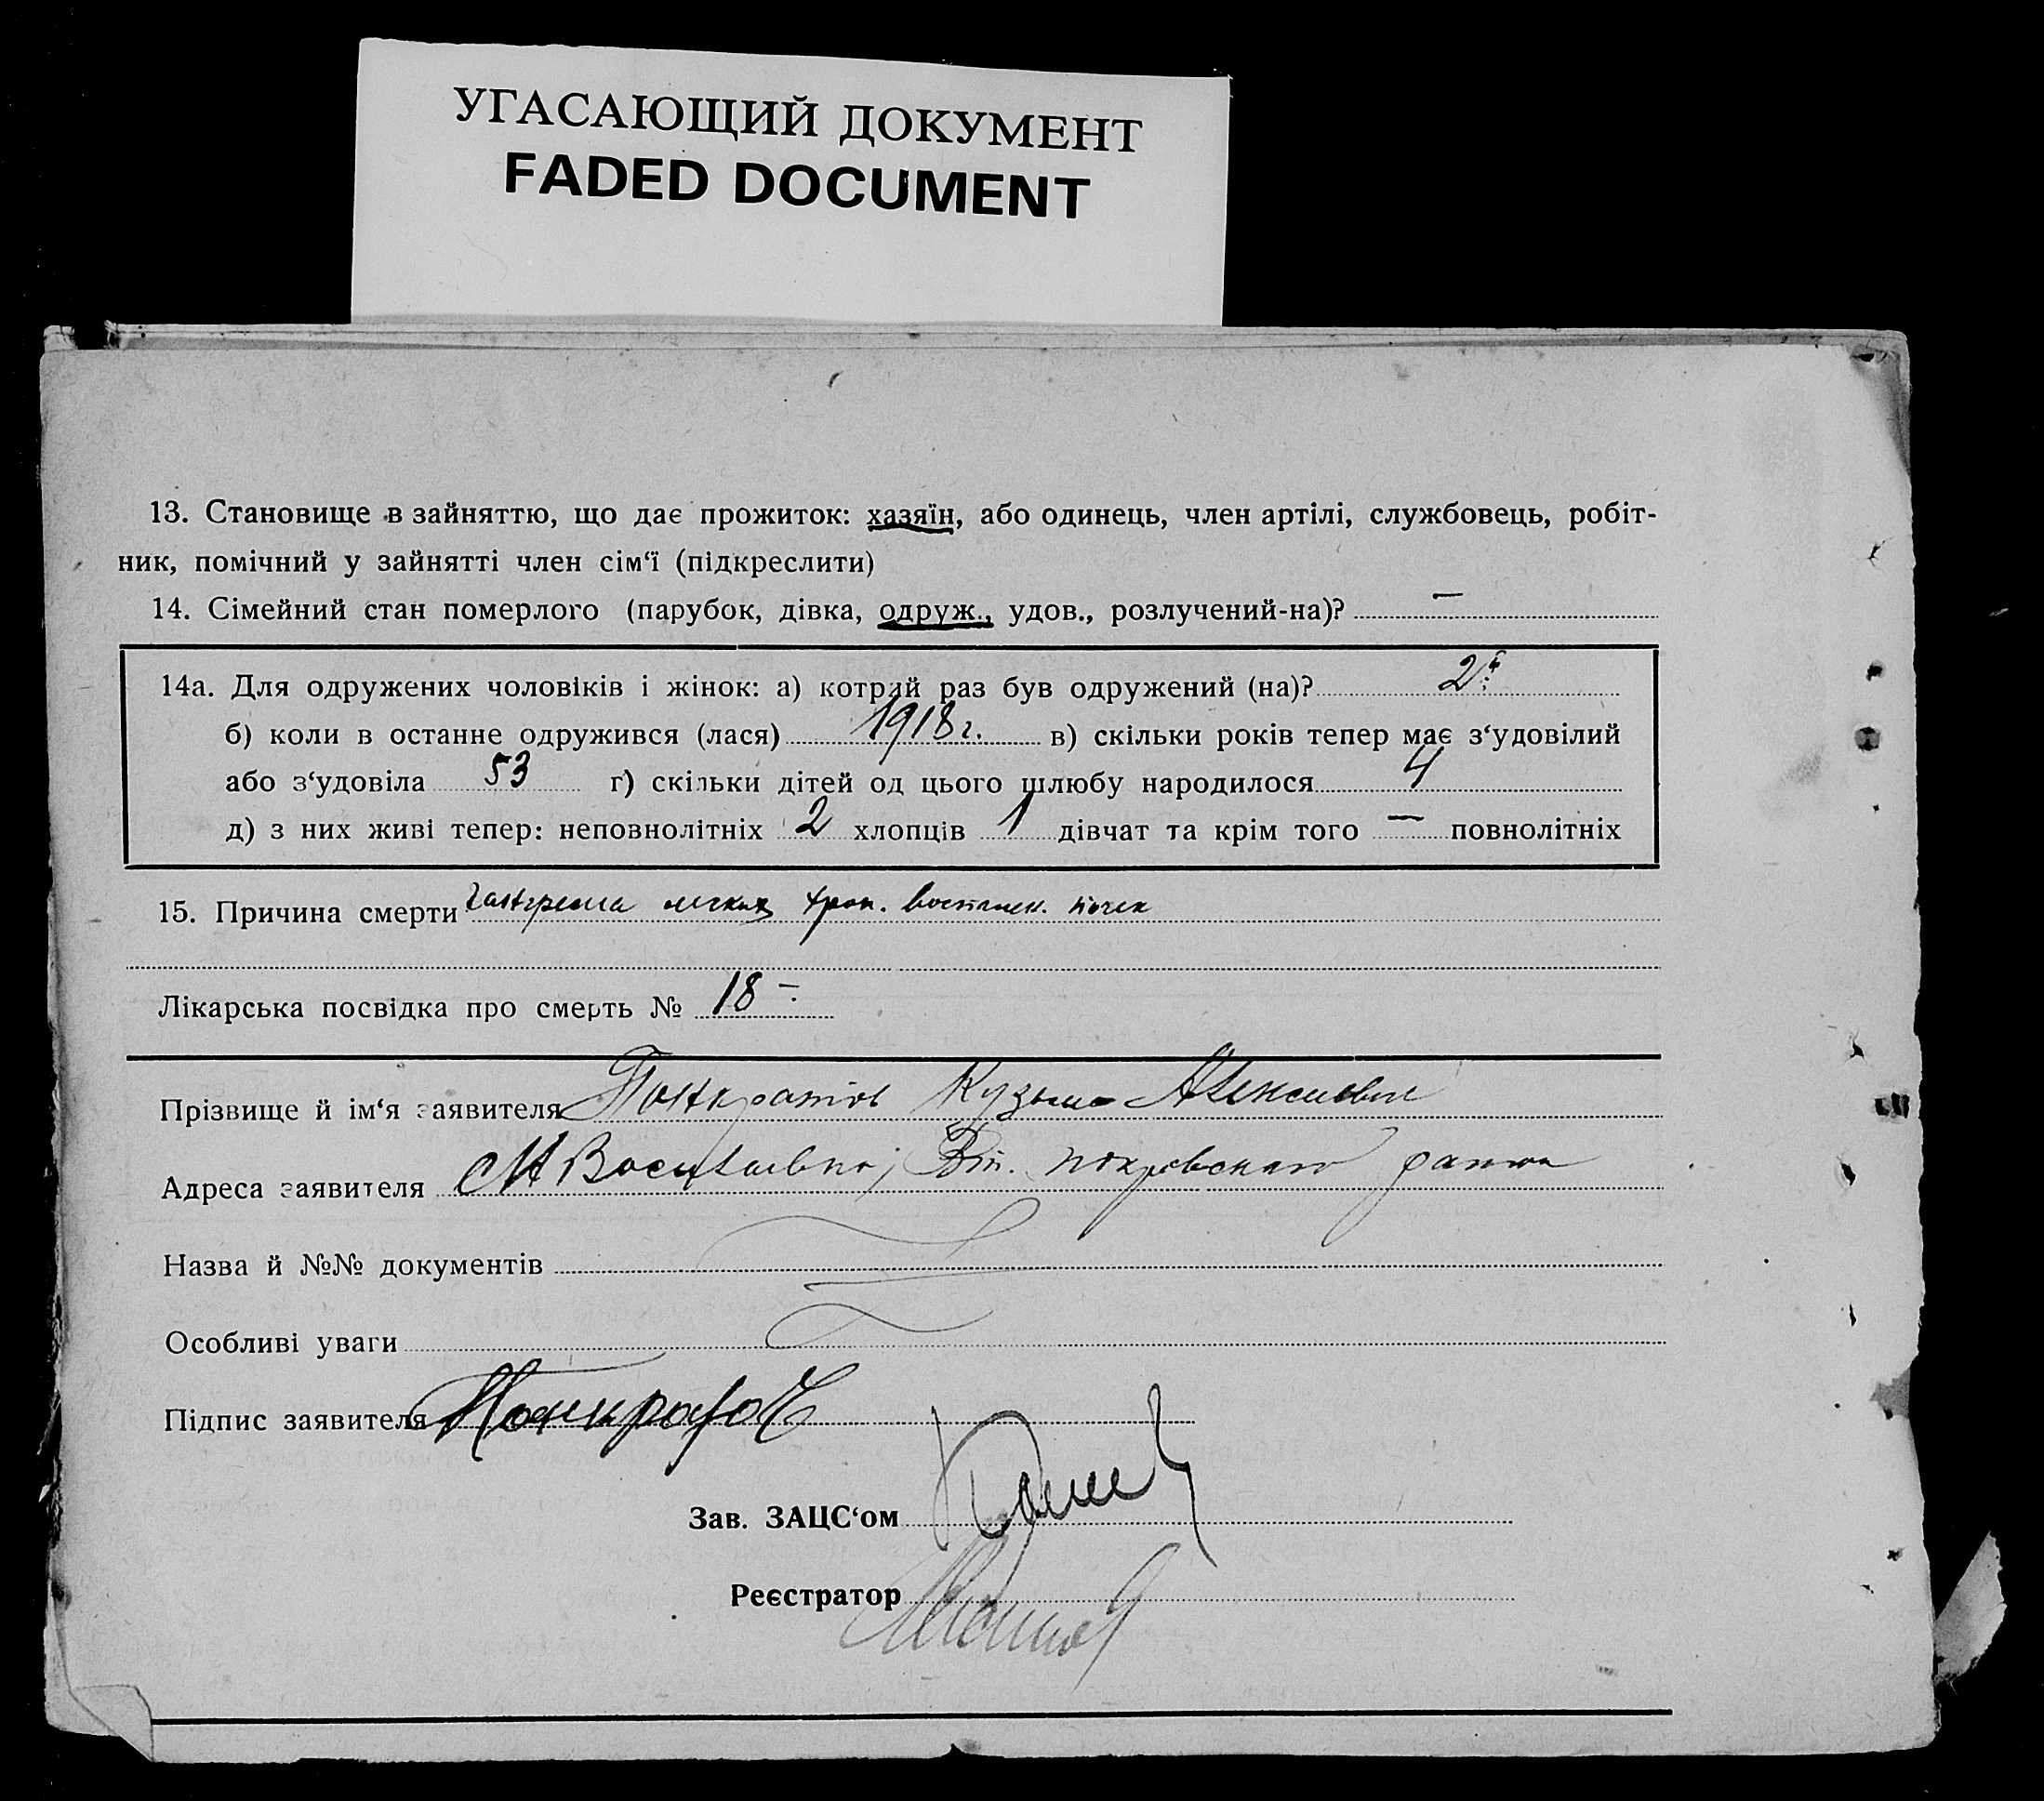 УГАСАЮЩИЙ ДОКУМЕНТ
FADED DOCUMENT
13. Становище в зайняттю, що дає прожиток: хазяїн, або одинець, член артілі, службовець, робіт-
ник, помічний у зайнятті член сім‘ї (підкреслити)
14. Сімейний стан померлого (парубок, дівка, одруж., удов., розлучений-на)? —
14а. Для одружених чоловіків і жінок: а) котрий раз був одружений (на)? 2й
б) коли в останне одружився (лася) 1918 г. в) скільки років тепер має з‘удовілий
або з‘удовіла 53 г) скільки дітей од цього шлюбу народилося 4
д) з них живі тепер: неповнолітніх 2 хлопців 1 дівчат та крім того — повнолітніх
15. Причина смерти Гангрена легких хрон. воспален. почек
Лікарська посвідка про смерть № 18 —
Прізвище й ім‘я заявителя Панкратов Кузьма Алексеевич
Адреса заявителя покровского
Назва й №№ документів
Особливі уваги
Підпис заявителя Панкратов
Зав. ЗАЦС‘ом
Реєстратор